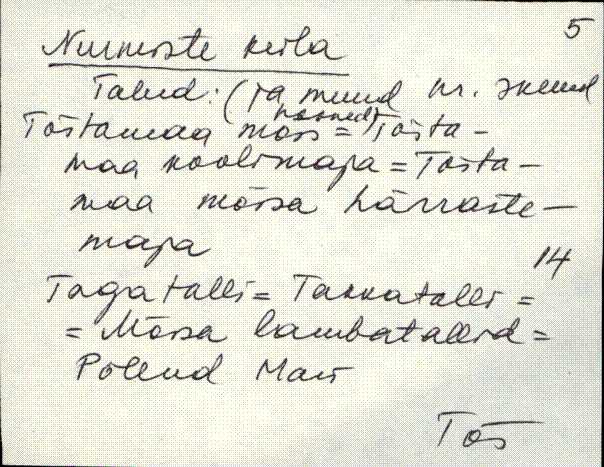 5
Nurmiste küla
Talud: (ja muud nr.
hooned)
Tõstamaa mõis = Tõsta-
maa koolimaja = Tõsta-
maa mõisa härraste-
maja
14
Tagatalli = Takkatalli =
= Mõisa lambatallid =
Põlend Mõis
Tõs